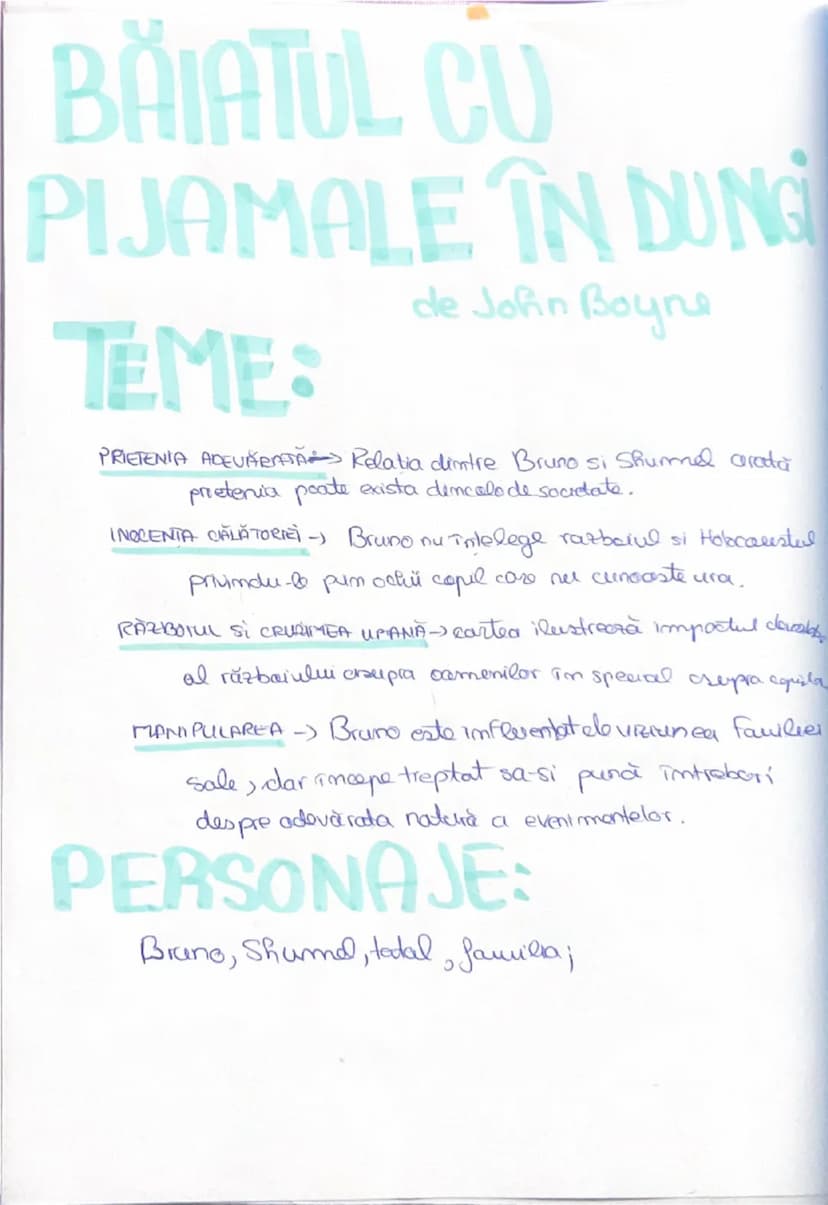 BĂIATUL CU
PIJAMALE ÎN DUNGI
de John Boyne
TEME:
PRIETENIA ADEVĂRATĂ -> Relatia dintre Bruno si Shumel arată
prietenia poate exista dincolo de societate.
INOCENTA CĂLĂTORIEI -> Bruno nu întelege razboiul si Holocaustul
privindu-l prin ochii copil care nu cunoaste ura.
RĂZBOIUL Si CRUZIMEA UMANĂ -> cartea ilustrează impactul
al războiului asupra oamenilor în special asupra
MANIPULAREA -> Bruno este influentat de viziunea familiei
sale, dar începe treptat sa-si pună întrebări
despre adevărata natură a evenimentelor.
PERSONAJE:
Bruno, Shumel, tatal, familia;